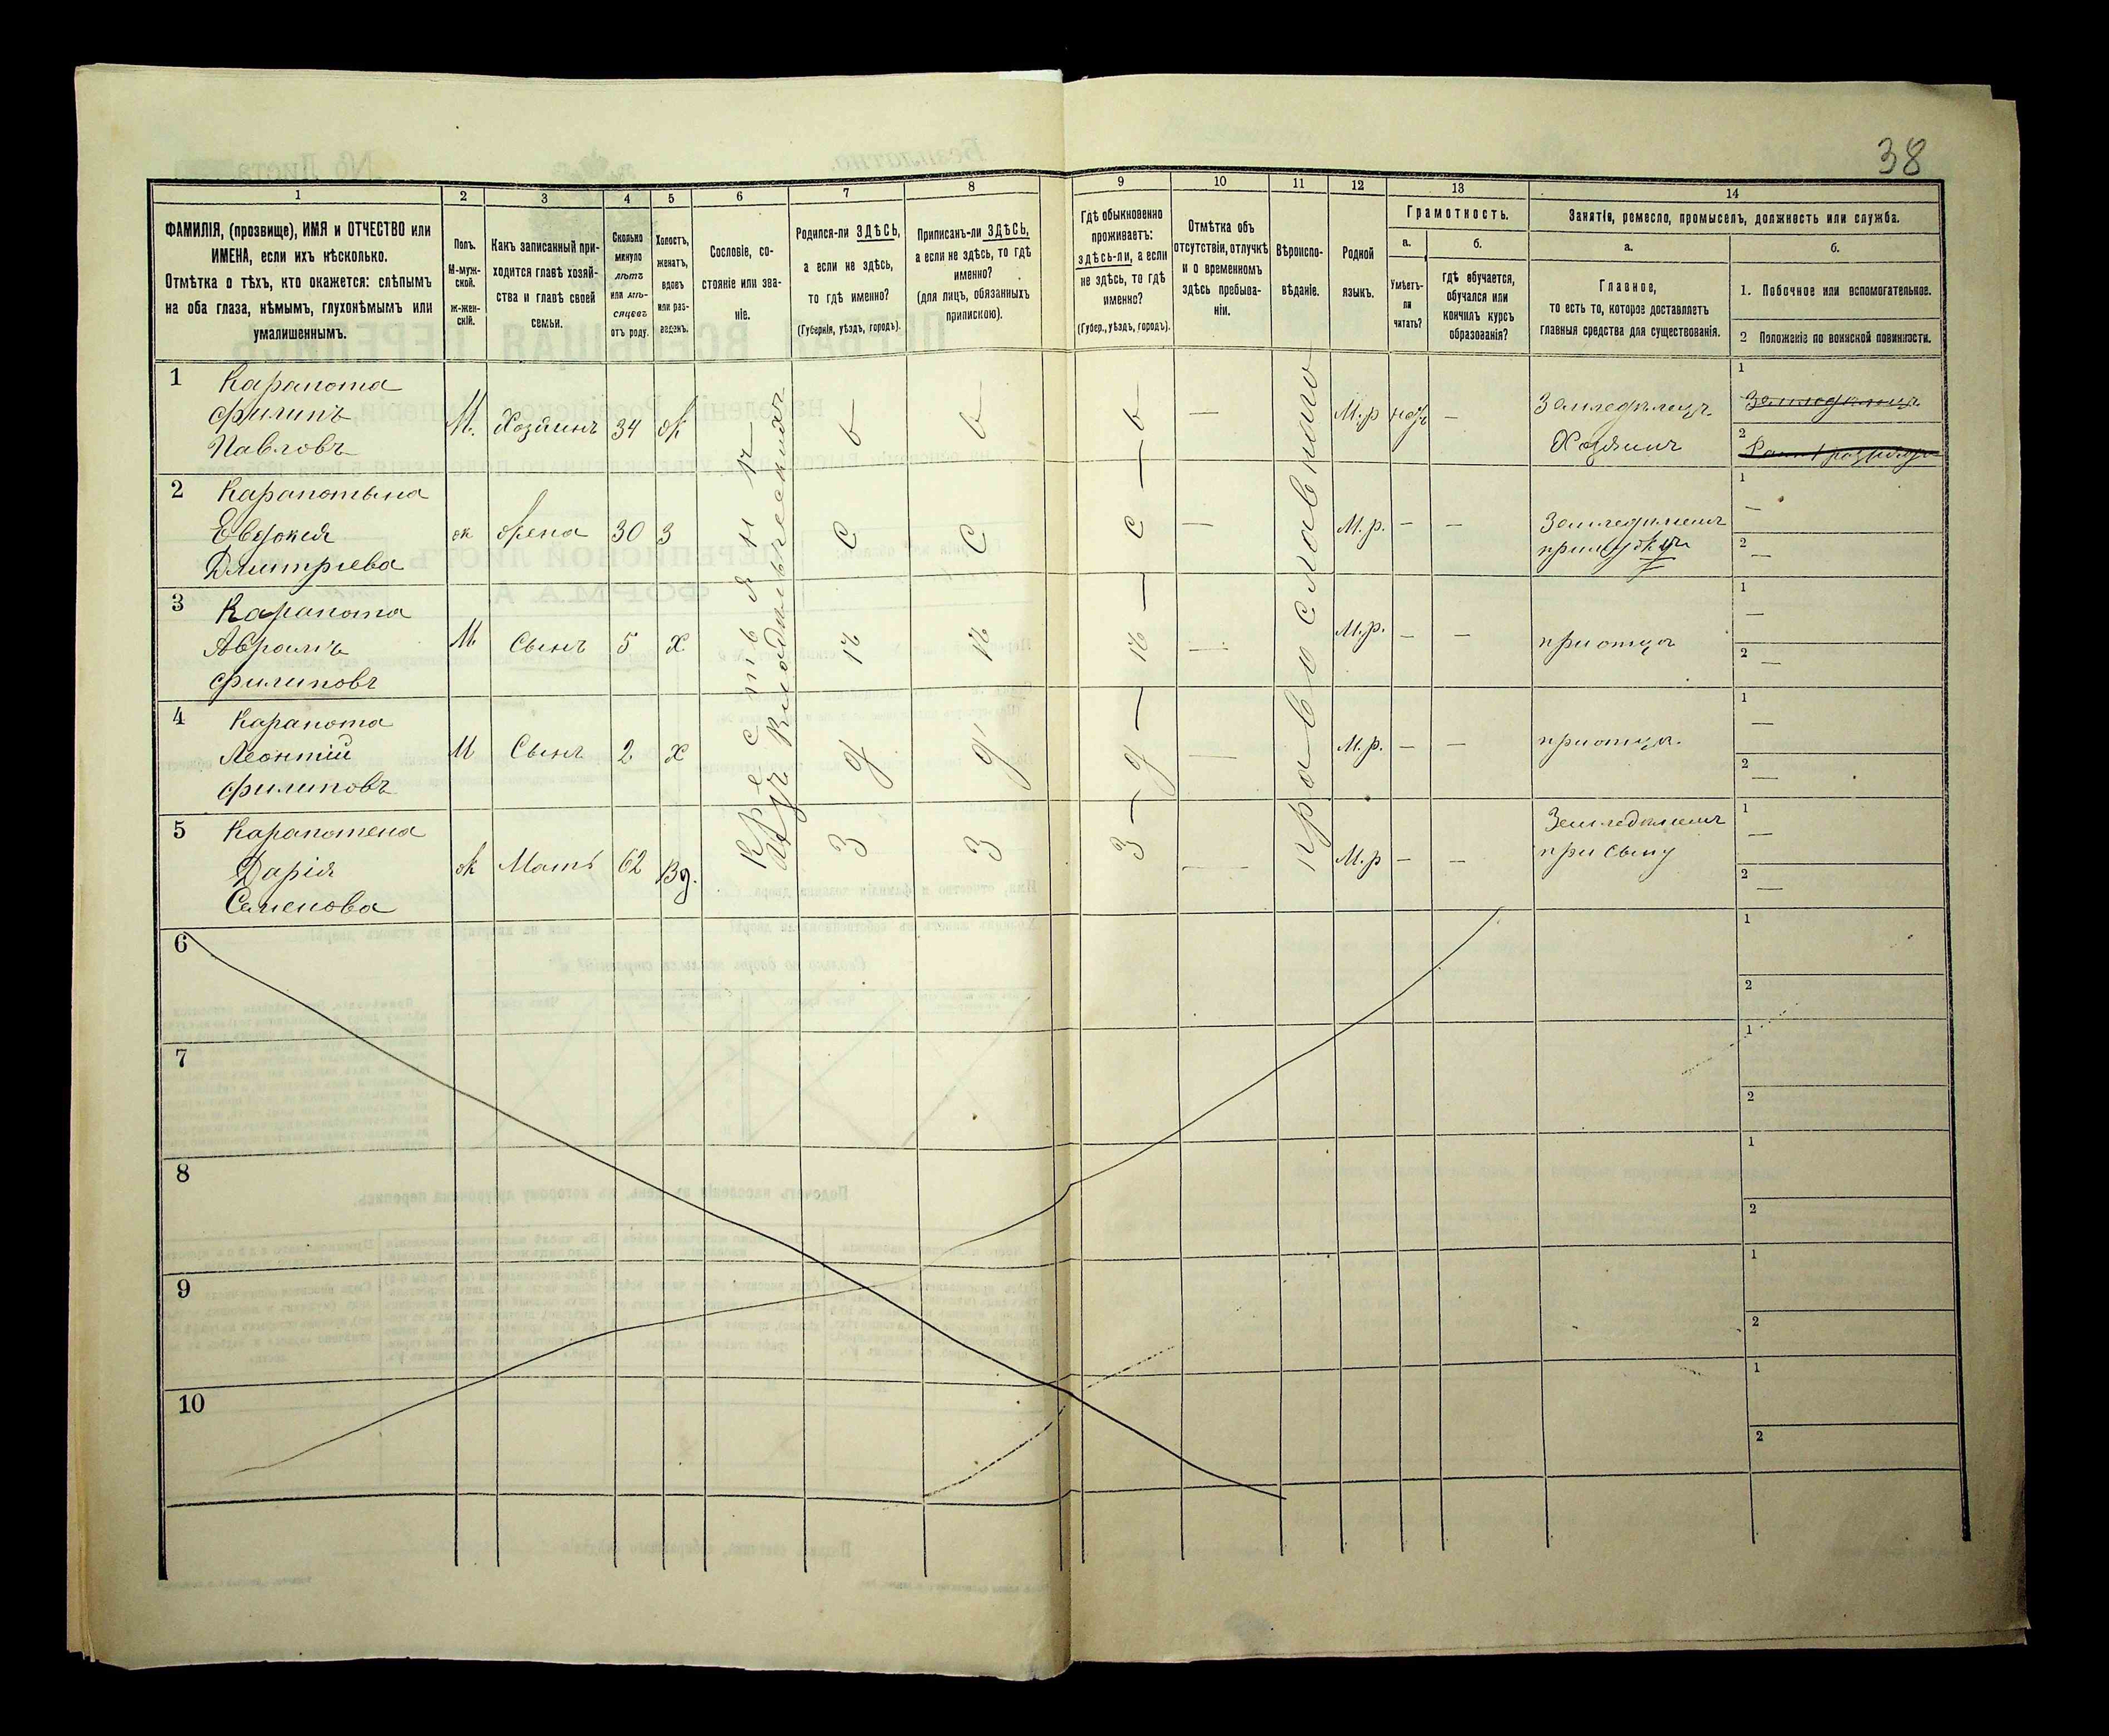 38
1
2
3
4
5
6
7
8
9
10
11
12
13
14
ФАМИЛІЯ, (прозвище), ИМЯ и ОТЧЕСТВО или
ИМЕНА, если ихъ нѣсколько.
Отмѣтка о тѣхъ, кто окажется: слѣпымъ
на оба глаза, нѣмымъ, глухонѣмымъ или
умалишеннымъ.
Полъ.
М-муж-
ской.
Ж-жен-
скій.
Какъ записанный при-
ходится главѣ хозяй-
ства и главѣ своей
семьи.
Сколько
минуло
лѣтъ
или мѣ-
сяцевъ
отъ роду.
Холостъ,
женатъ,
вдовъ
или раз-
веденъ.
Сословіе, со-
стояніе или зва-
ніе.
Родился-ли ЗДѢСЬ,
а если не здѣсь,
то гдѣ именно?
(Губернія, уѣздъ, городъ).
Приписанъ-ли ЗДѢСЬ,
а если не здѣсь, то гдѣ
именно?
(для лицъ, обязанныхъ
припискою).
Гдѣ обыкновенно
проживаетъ:
здѣсь-ли, а если
не здѣсь, то гдѣ
именно?
(Губер., уѣздъ, городъ).
Отмѣтка объ
отсутствіи, отлучкѣ
и о временномъ
здѣсь пребыва-
ніи.
Вѣроиспо-
вѣданіе.
Родной
языкъ.
Грамотность.
а.
Умѣетъ-
ли
читать?
б.
гдѣ обучается,
обучался или
кончилъ курсъ
образованія?
Занятіе, ремесло, промыселъ, должность или служба.
а.
Главное,
то есть то, которое доставляетъ
главныя средства для существованія.
б.
1. Побочное или вспомогательное.
2 Положеніе по воинской повинности.
1 Карапота
Филипъ
Павловъ
М. Хозяинъ 34 Ж
М.р —
Хозяинъ
1
2
2 Карапотына
Евдокия
Дмитриева
ж 30 З
М.р. — —
1 —
2 —
3 Карапота
Аврамъ
Филиповъ
М Сынъ 5 Х
М.р. — —
при отцѣ
1 —
2 —
4 Карапота
Леонтий
Филиповъ
М Сынъ 2 Х
М.р. — —
при отцѣ.
1 —
2 —
5 Карапотена
Дарія
Семенова
ж Мать 62 Вд.
М.р — —
при сыну
1 —
2 —
Крестьянъ
здѣсь
здѣсь
здѣсь
православнаго
6
1
2
7
1
2
8
1
2
9
1
2
10
1
2